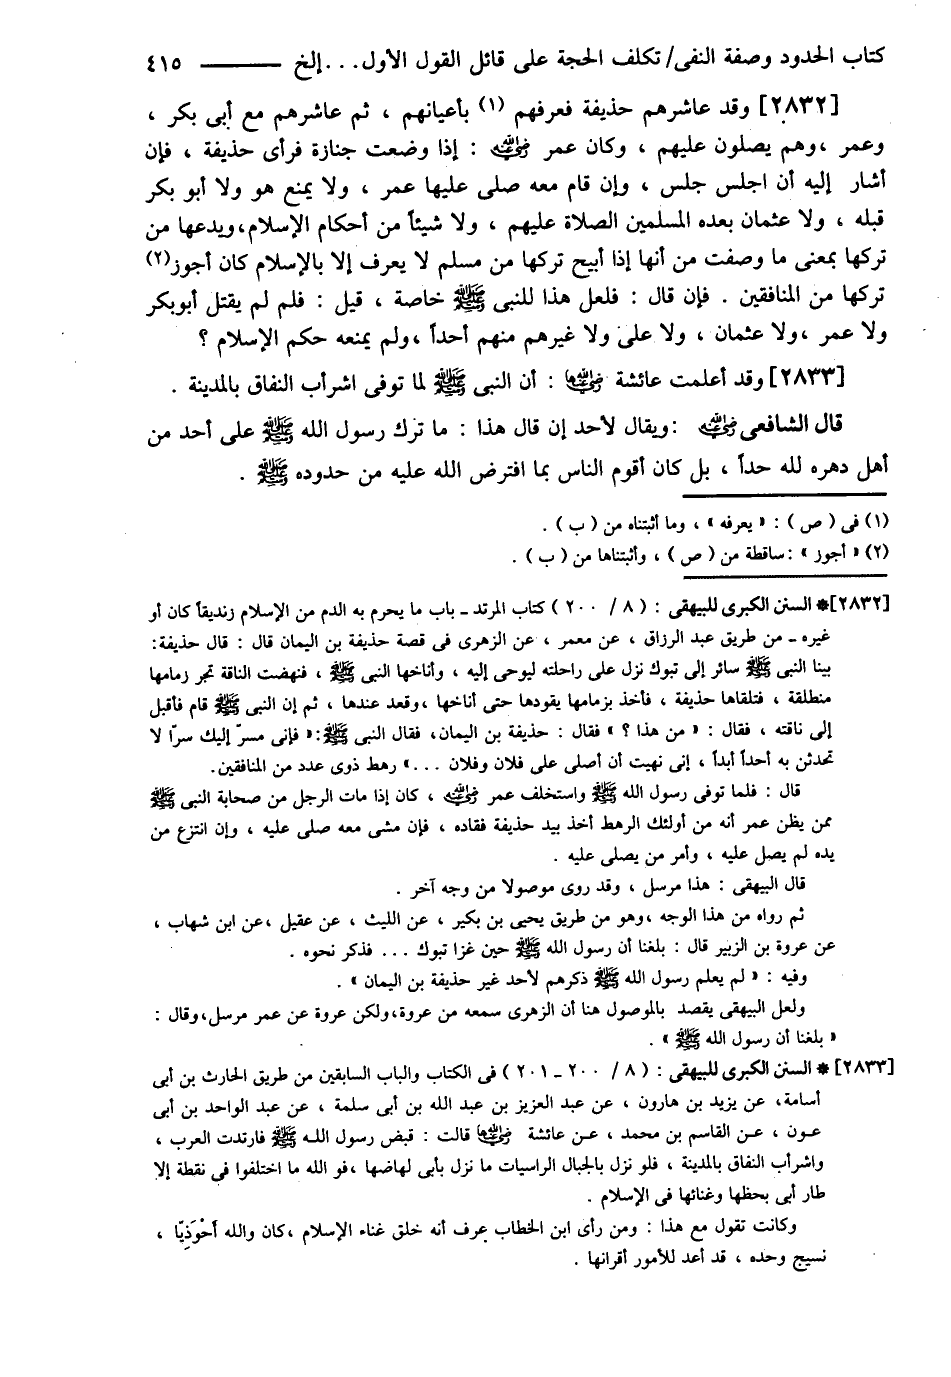 كتاب الحدود وصفة النفى/ تكلف الحجة على قائل القول الأول... إلخ ــــــــ ٤١٥
[٢٨٣٢] وقد عاشرهم حذيفة فعرفهم (١) بأعيانهم ، ثم عاشرهم مع أبى بكر ،
وعمر ،وهم يصلون عليهم ، وكان عمر رضي الله عنه : إذا وضعت جنازة فرأى حذيفة ، فإن
أشار إليه أن اجلس جلس ، وإن قام معه صلى عليها عمر ، ولا يمنع هو ولا أبو بكر
قبله ، ولا عثمان بعده المسلمين الصلاة عليهم ، ولا شيئاً من أحكام الإسلام،ويدعها من
تركها بمعنى ما وصفت من أنها إذا أبيح تركها من مسلم لا يعرف إلا بالإسلام كان أجوز(٢)
تركها من المنافقين . فإن قال : فلعل هذا للنبى ﷺ خاصة ، قيل : فلم لم يقتل أبوبكر
ولا عمر ،ولا عثمان ، ولا على ولا غيرهم منهم أحداً ،ولم يمنعه حكم الإسلام ؟
[٢٨٣٣] وقد أعلمت عائشة رضي الله عنها : أن النبى ﷺ لما توفى اشرأب النفاق بالمدينة .
قال الشافعى رضي الله عنه :ويقال لأحد إن قال هذا : ما ترك رسول الله ﷺ على أحد من
أهل دهره لله حداً ، بل كان أقوم الناس بما افترض الله عليه من حدوده ﷺ .
(١) فى ( ص ) : « يعرفه » ، وما أثبتناه من ( ب ) .
(٢) « أجوز » :ساقطة من ( ص ) ، وأثبتناها من ( ب ) .
[٢٨٣٢]* السنن الكبرى للبيهقى : ( ٨ / ٢٠٠ ) كتاب المرتد ـ باب ما يحرم به الدم من الإسلام زنديقاً كان أو
غيره ـ من طريق عبد الرزاق ، عن معمر ، عن الزهرى فى قصة حذيفة بن اليمان قال : قال حذيفة:
بينا النبى ﷺ سائر إلى تبوك نزل على راحلته ليوحى إليه ، وأناخها النبى ﷺ ، فنهضت الناقة تجر زمامها
منطلقة ، فتلقاها حذيفة ، فأخذ بزمامها يقودها حتى أناخها ،وقعد عندها ، ثم إن النبى ﷺ قام فأقبل
إلى ناقته ، فقال : « من هذا ؟ » فقال : حذيفة بن اليمان، فقال النبى ﷺ:« فإنى مسرّ إليك سرّا لا
تحدثن به أحداً أبداً ، إنى نهيت أن أصلى على فلان وفلان ...» رهط ذوى عدد من المنافقين.
قال : فلما توفى رسول الله ﷺ واستخلف عمر رضي الله عنه ، كان إذا مات الرجل من صحابة النبى ﷺ
ممن يظن عمر أنه من أولئك الرهط أخذ بيد حذيفة فقاده ، فإن مشى معه صلى عليه ، وإن انتزع من
يده لم يصل عليه ، وأمر من يصلى عليه .
قال البيهقى : هذا مرسل ، وقد روى موصولا من وجه آخر .
ثم رواه من هذا الوجه ،وهو من طريق يحيى بن بكير ، عن الليث ، عن عقيل ،عن ابن شهاب ،
عن عروة بن الزبير قال : بلغنا أن رسول الله ﷺ حين غزا تبوك ... فذكر نحوه .
وفيه : « لم يعلم رسول الله ﷺ ذكرهم لأحد غير حذيفة بن اليمان » .
ولعل البيهقى يقصد بالموصول هنا أن الزهرى سمعه من عروة،ولكن عروة عن عمر مرسل،وقال :
« بلغنا أن رسول الله ﷺ » .
[٢٨٣٣] * السنن الكبرى للبيهقى : ( ٨ / ٢٠٠ ـ ٢٠١ ) فى الكتاب والباب السابقين من طريق الحارث بن أبى
أسامة، عن يزيد بن هارون ، عن عبد العزيز بن عبد الله بن أبى سلمة ، عن عبد الواحد بن أبى
عـون ، عـن القاسم بن محمد ، عـن عائشة رضي الله عنها قالت : قبض رسول اللـه ﷺ فارتدت العرب ،
واشرأب النفاق بالمدينة ، فلو نزل بالجبال الراسيات ما نزل بأبى لهاضها ،فو الله ما اختلفوا فى نقطة إلا
طار أبى بحظها وغنائها فى الإسلام .
وكانت تقول مع هذا : ومن رأى ابن الخطاب عرف أنه خلق غناء الإسلام ،كان والله أَحْوَذِيّا ،
نسيج وحده ، قد أعد للأمور أقرانها .